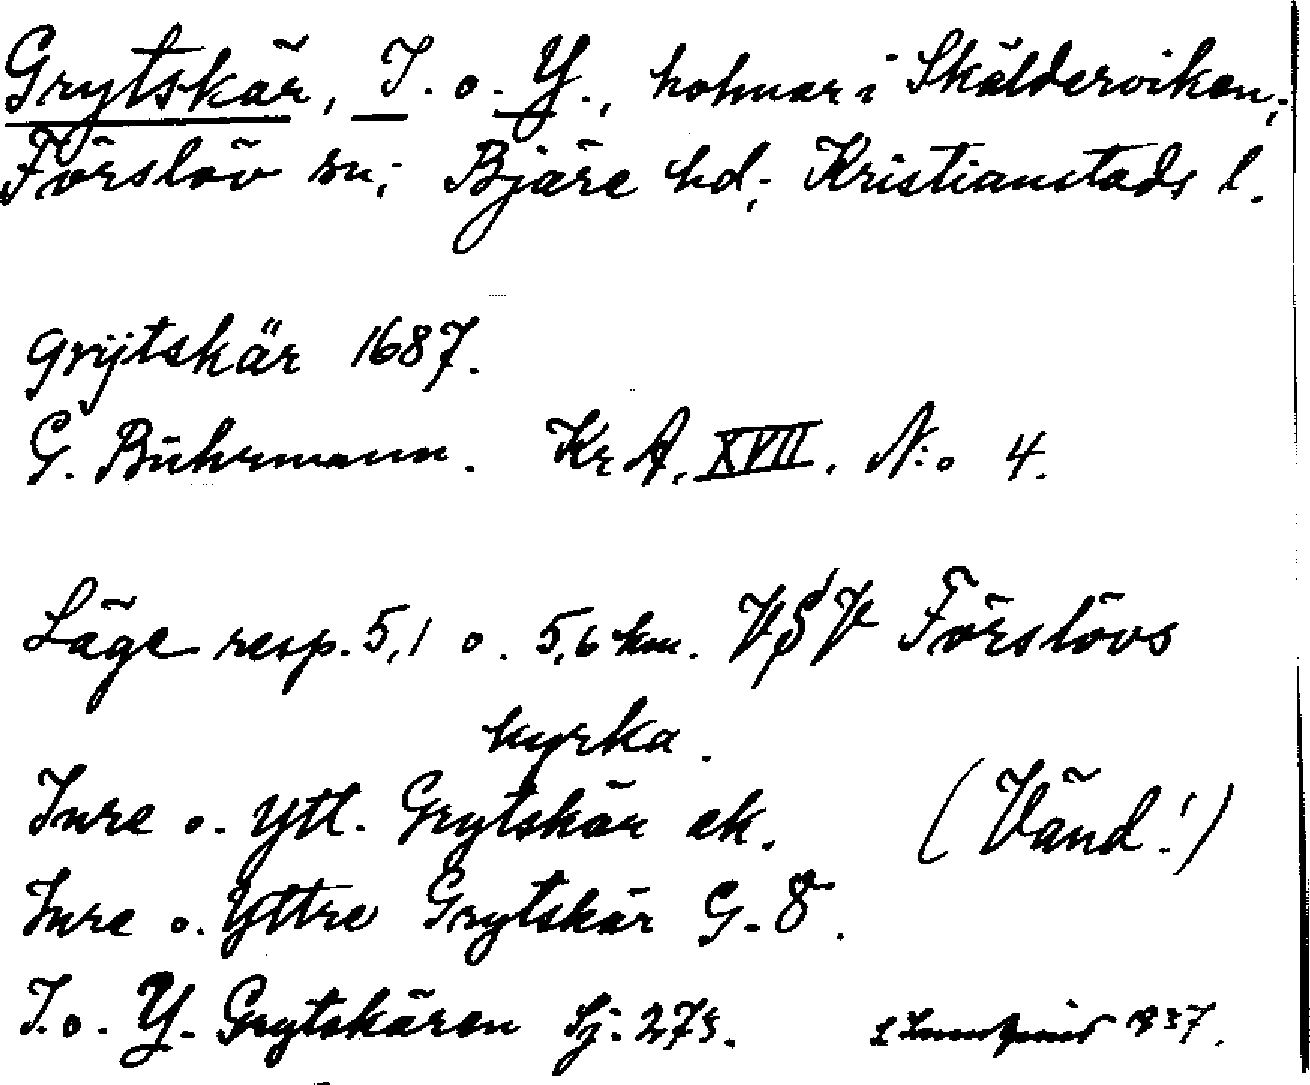 Grytskär, I. o. Y., holmar i Skälderviken;
Förslöv sn; Bjäre hd; Kristianstads l.
Grÿtskär 1687.
G. Bührmann. Kr A. XVII. N:o 4.
Läge resp. 5,1 o. 5,6 km. VSV Förslövs
kyrka.
Inre o. Ytt. Grytskär ek. (Vänd!)
Inre o. Yttre Grytskär G.
I. o. Y. Grytskären Sj. 1937.